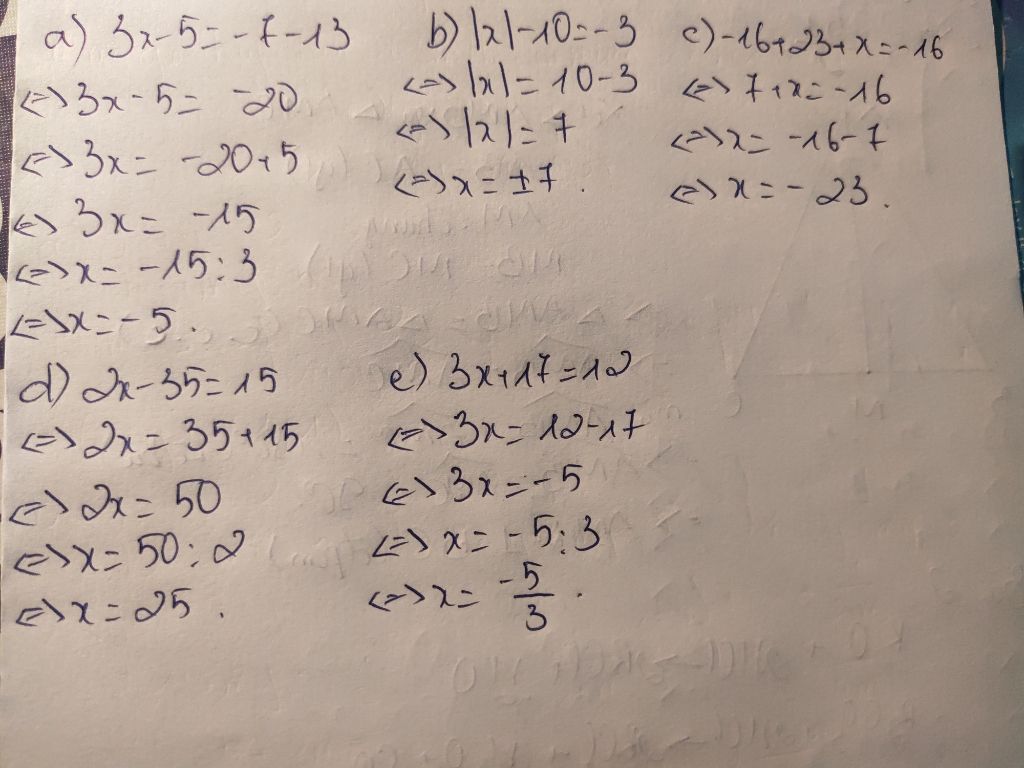 a) 3x-5=-7-13
<=> 3x-5= -20
<=> 3x= -20+5
<=> 3x= -15
<=> x= -15:3
<=> x=-5.
b) |x|-10=-3
<=> |x|= 10-3
<=> |x|= 7
<=> x= ±7.
c) -16+23+x=-16
<=> 7+x=-16
<=> x= -16-7
<=> x= -23.
d) 2x-35=15
<=> 2x= 35+15
<=> 2x= 50
<=> x= 50:2
<=> x= 25.
e) 3x+17=12
<=> 3x= 12-17
<=> 3x=-5
<=> x= -5:3
<=> x= -5/3.